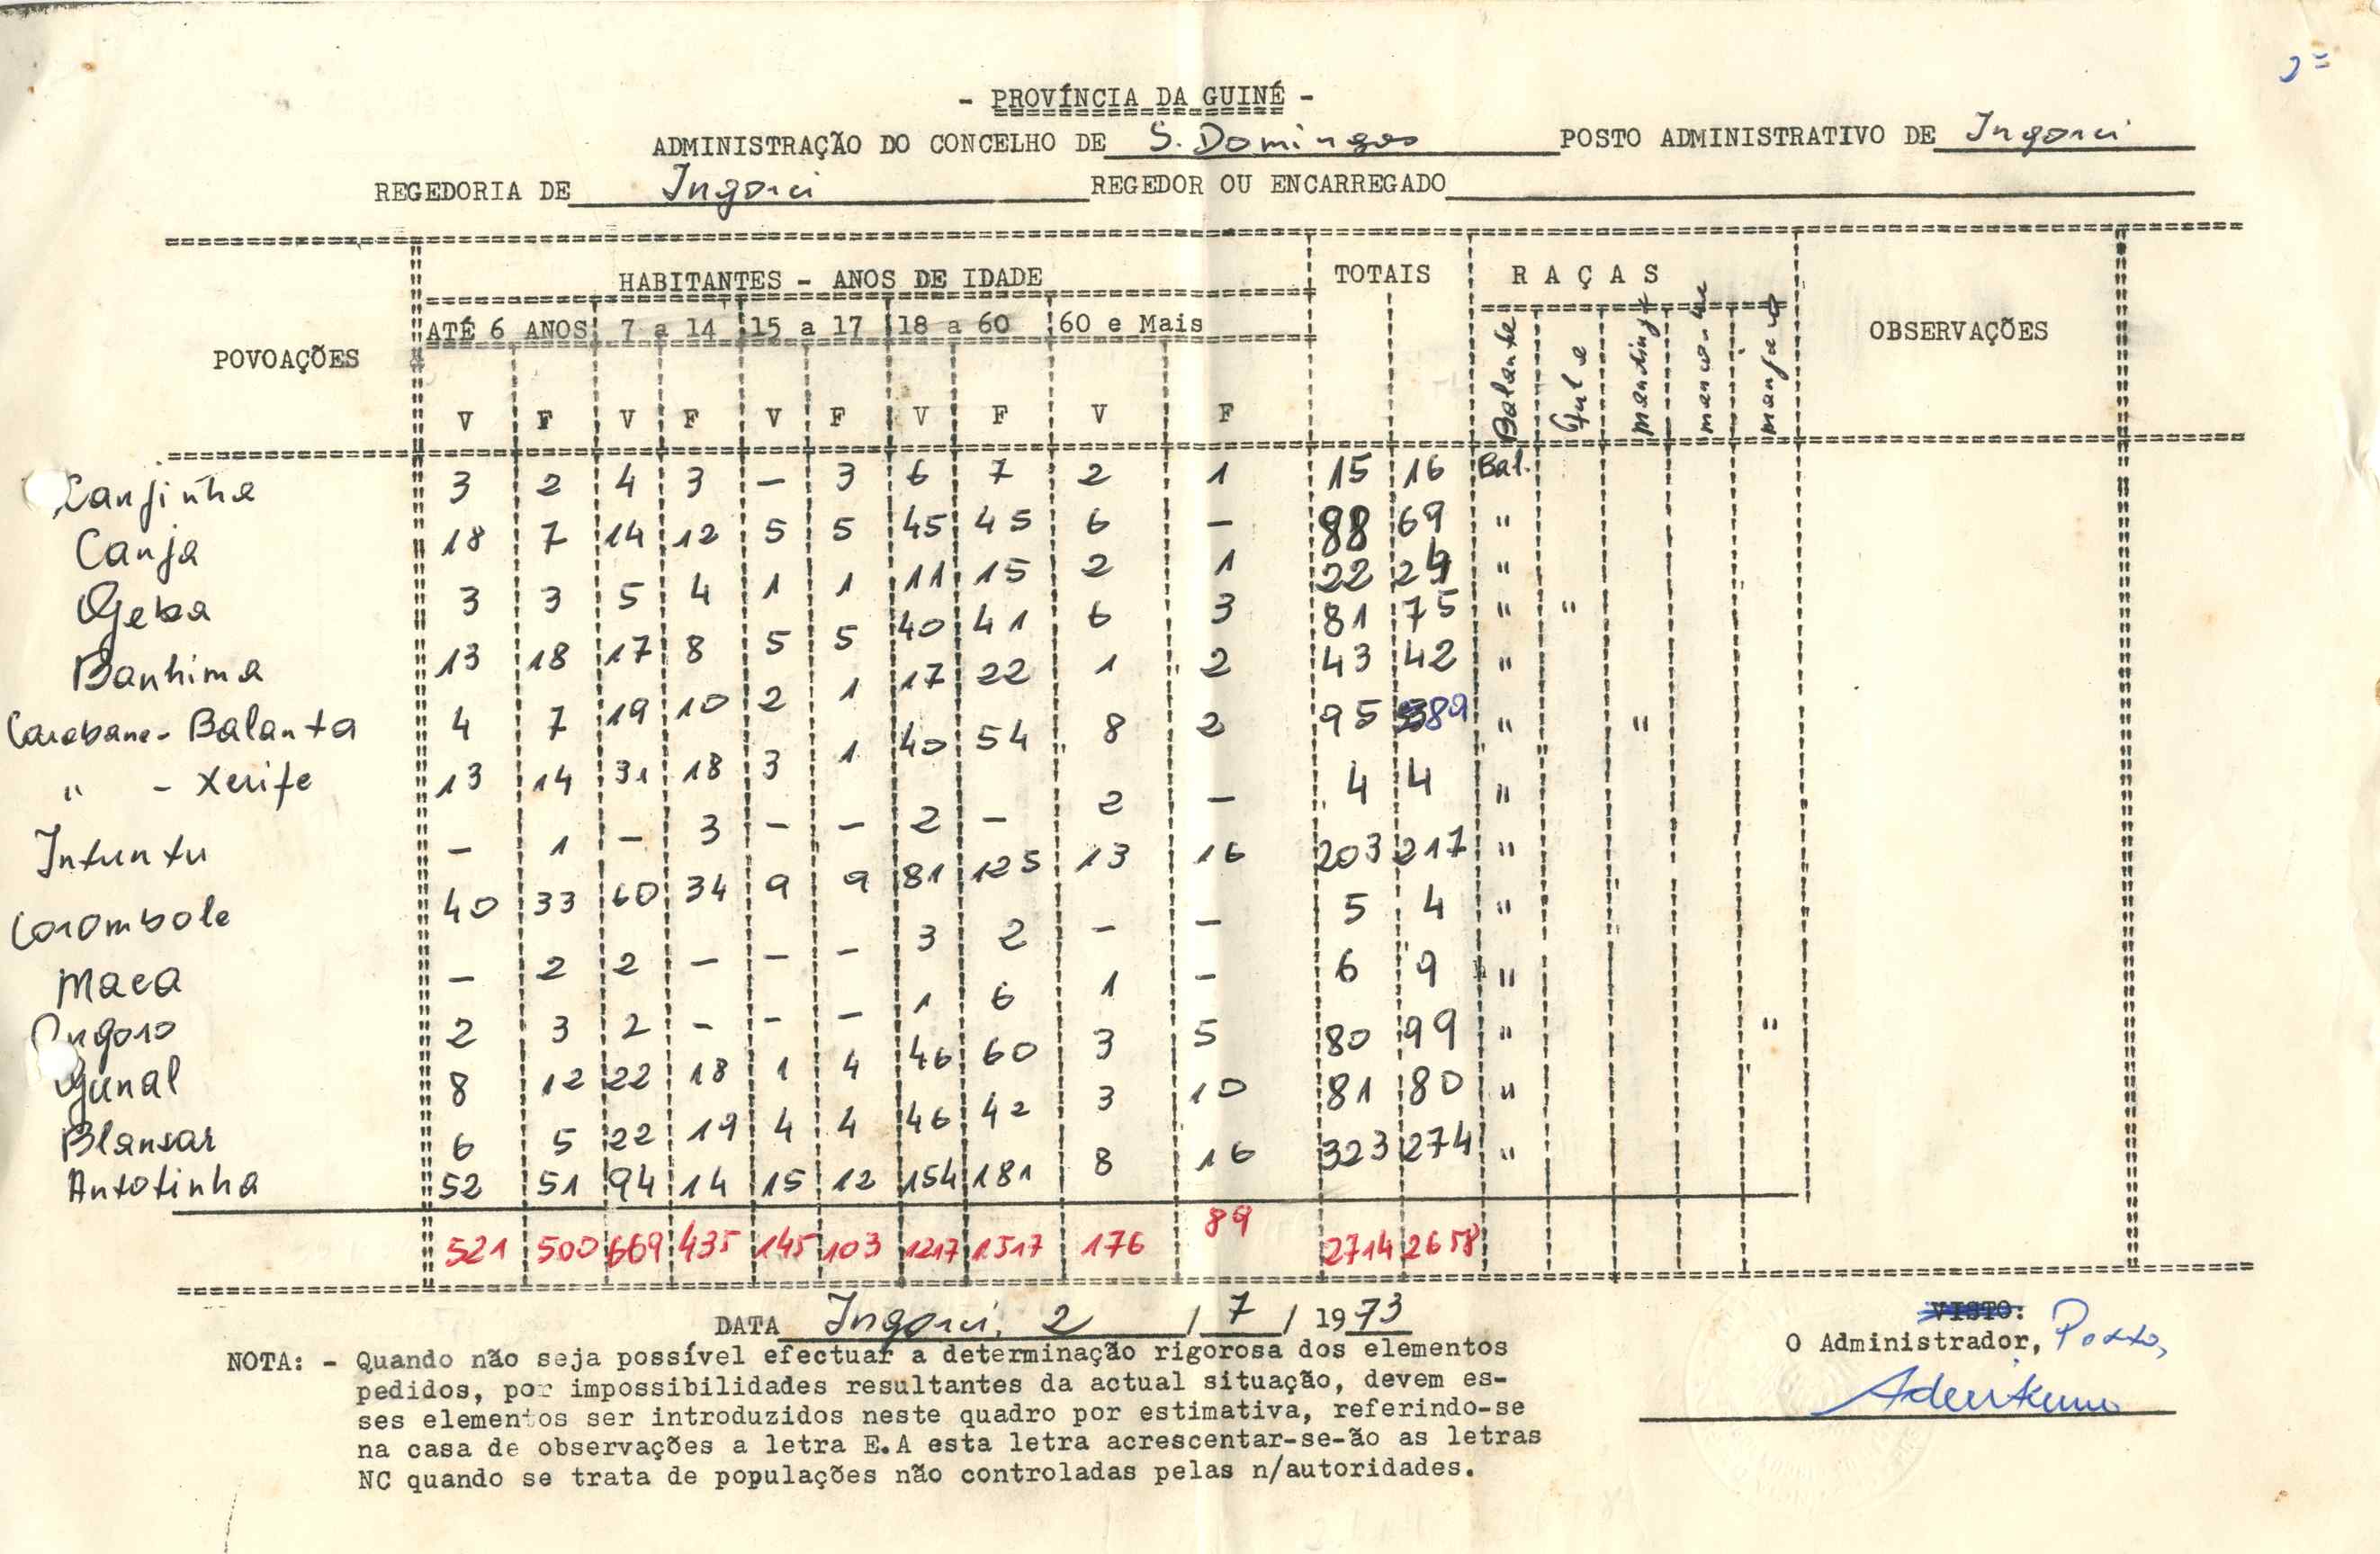 2ª
- PROVÍNCIA DA GUINÉ -
ADMINISTRAÇÃO DO CONCELHO DE S. Domingos POSTO ADMINISTRATIVO DE Ingorei
REGEDORIA DE Ingorei REGEDOR OU ENCARREGADO
POVOAÇÕES HABITANTES - ANOS DE IDADE TOTAIS RAÇAS OBSERVAÇÕES
ATÉ 6 ANOS 7 a 14 15 a 17 18 a 60 60 e Mais Balante Fula mandinga mancanhe manjaco
V F V F V F V F V F
Canjinha 3 2 4 3 - 3 6 7 2 1 15 16 Bal.
Canja 18 7 14 12 5 5 45 45 6 - 88 69 "
Geba 3 3 5 4 1 1 11 15 2 1 22 24 "
Banhima 13 18 17 8 5 5 40 41 6 3 81 75 " "
Carabane - Balanta 4 7 19 10 2 1 17 22 1 2 43 42 "
" - Xerife 13 14 31 18 3 1 40 54 8 2 95 89 " "
Intuntu - 1 - 3 - - 2 - 2 - 4 4 "
Corombole 40 33 60 34 9 9 81 125 13 16 203 217 "
Maca - 2 2 - - - 3 2 - - 5 4 "
Ongoro 2 3 2 - - - 1 6 1 - 6 9 "
Gunal 8 12 22 18 1 4 46 60 3 5 80 99 " "
Blansar 6 5 22 19 4 4 46 42 3 10 81 80 "
Antotinha 52 51 94 14 15 12 154 181 8 16 323 274 "
521 500 669 435 145 103 1217 1517 176 89 2714 2658
DATA Ingorei, 2 / 7 / 1973
VISTO:
O Administrador, Posto,
NOTA: - Quando não seja possível efectuar a determinação rigorosa dos elementos
pedidos, por impossibilidades resultantes da actual situação, devem es-
ses elementos ser introduzidos neste quadro por estimativa, referindo-se
na casa de observações a letra E.A esta letra acrescentar-se-ão as letras
NC quando se trata de populações não controladas pelas n/autoridades.